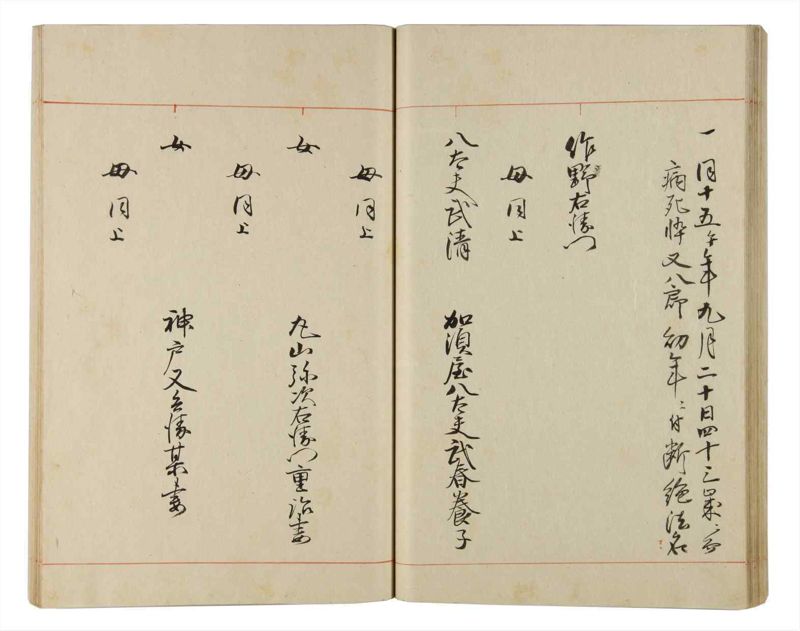 一同十五午年九月二十日四十三歳ニ而
病死悴又八郎幼年ニ付断絶法名
作野右衛門
母同上
八太夫武清 加須屋八太夫武春養子
母同上
女 丸山弥次右衛門重治妻
母同上
女 神戸又兵衛某妻
母同上